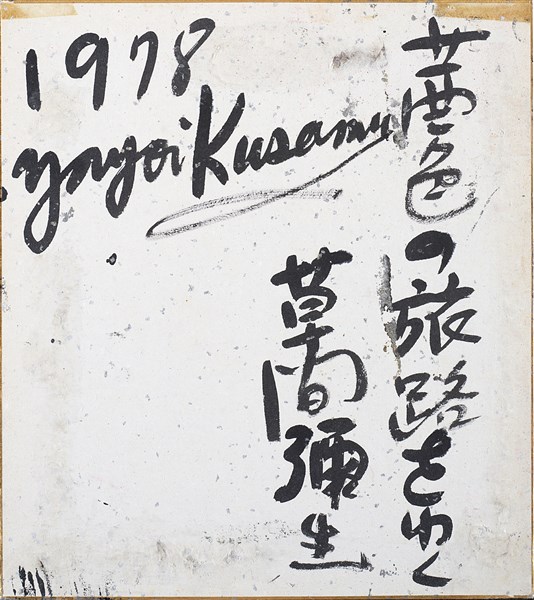 1978
Yayoi Kusama
夢色の旅路をゆく
草間彌生